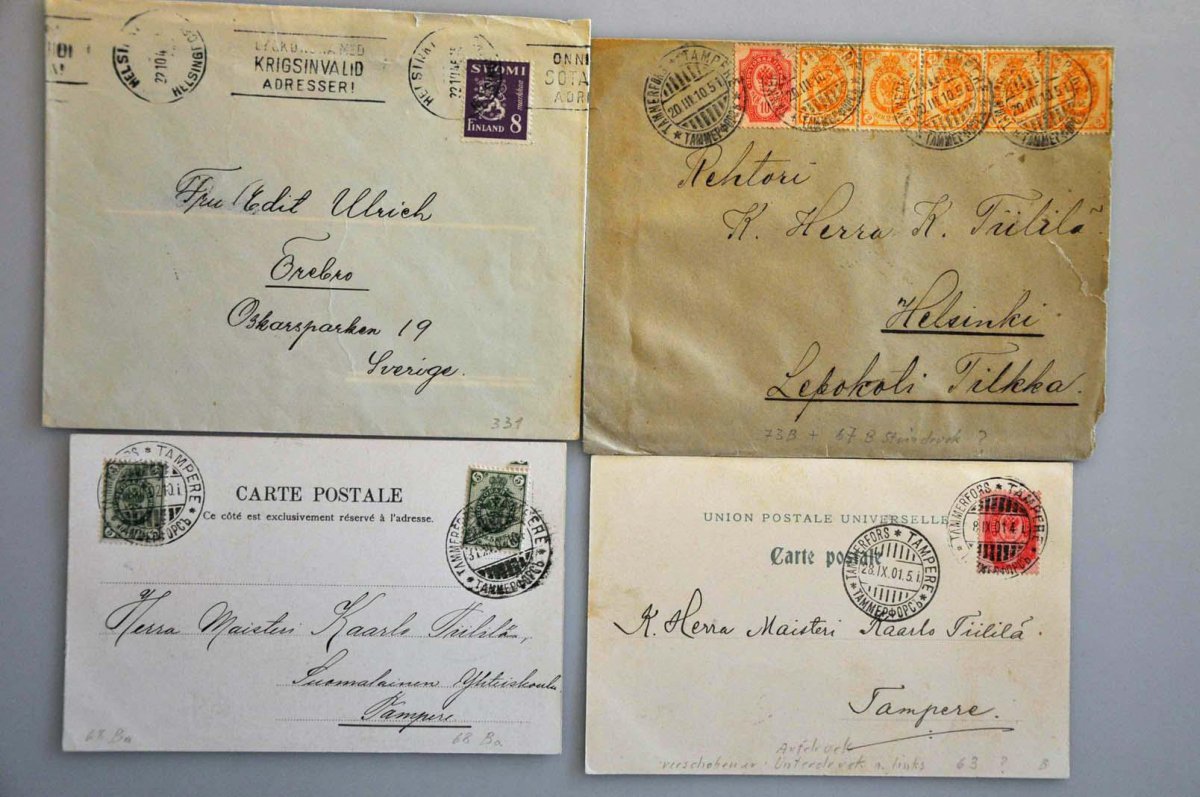 HELSINKI
HELSINGFORS
22.10.4
KRIGSINVALID
ADRESSER!
ONNI
SOTA
ADR
SUOMI
FINLAND 8
markkaa
Fru Edit Ulrich
Örebro
Oskarsparken 19
Sverige.
331
TAMPERE
TAMMERFORS
20.III.10.5 I
ТАММЕРФОРСЪ
10
Rehtori
K. Herra K. Tiililä.
Helsinki
Lepokoti Tilkka.
73B + 67 B Steindruck ?
TAMPERE
ТАММЕРФОРСЪ
5
CARTE POSTALE
Ce côté est exclusivement réservé à l'adresse.
5
TAMMERFORS
ТАММЕРФОРСЪ
Herra Maisteri Kaarlo Tiililä,
Suomalainen Yhteiskoulu
Tampere
68 Ba
68 Ba
UNION POSTALE UNIVERSELLE
Carte postale
TAMMERFORS * TAMPERE
8.IX.01.4 I.
TAMMERFORS * TAMPERE
28.IX.01.5 I.
* ТАММЕРФОРСЪ *
K. Herra Maisteri Kaarlo Tiililä.
Tampere.
Aufdruck
verschobener Unterdruck n. links 63 ? B